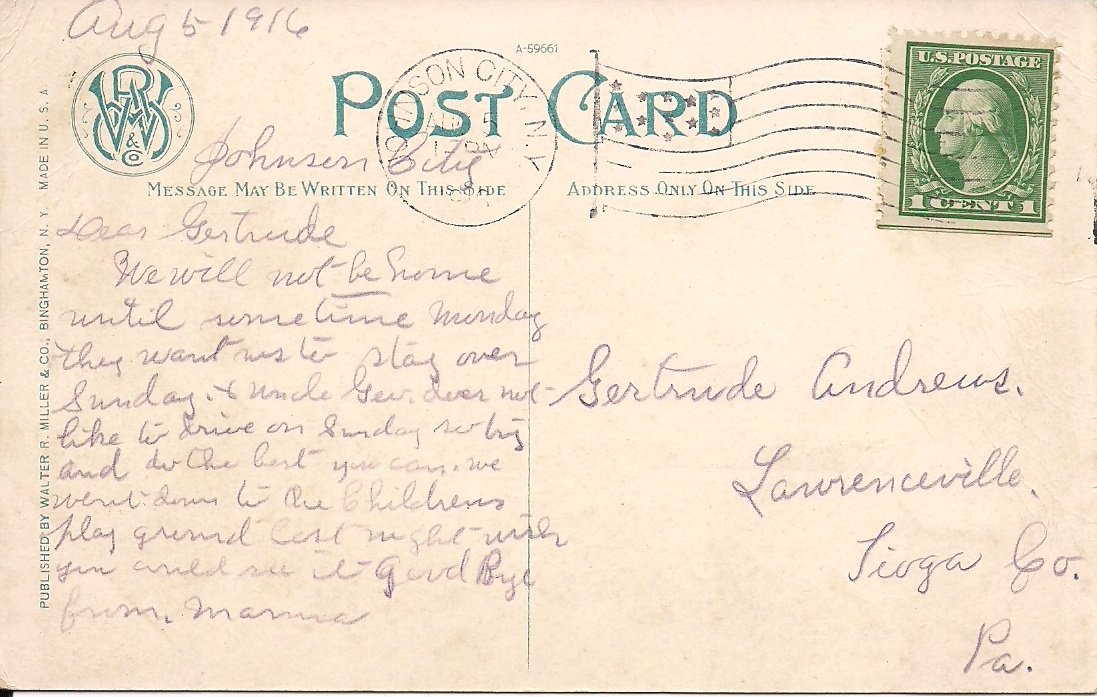 Aug 5 1916
A-59661
WRM
& Co
POST CARD
JOHNSON CITY, N.Y.
AUG 5
PM
1916
U.S. POSTAGE
1 CENT 1
Johnson City
MESSAGE MAY BE WRITTEN ON THIS SIDE
ADDRESS ONLY ON THIS SIDE
Dear Gertrude
We will not be home
until sometime Monday
they want us to stay over
Sunday. & Uncle Geo. does not
like to drive on Sunday so try
and do the best you can. we
went down to the Childrens
play ground last night wish
you could see it Good Bye
from Mamma
Gertrude Andrews.
Lawrenceville.
Tioga Co.
Pa.
PUBLISHED BY WALTER R. MILLER & CO., BINGHAMTON, N. Y. MADE IN U. S. A